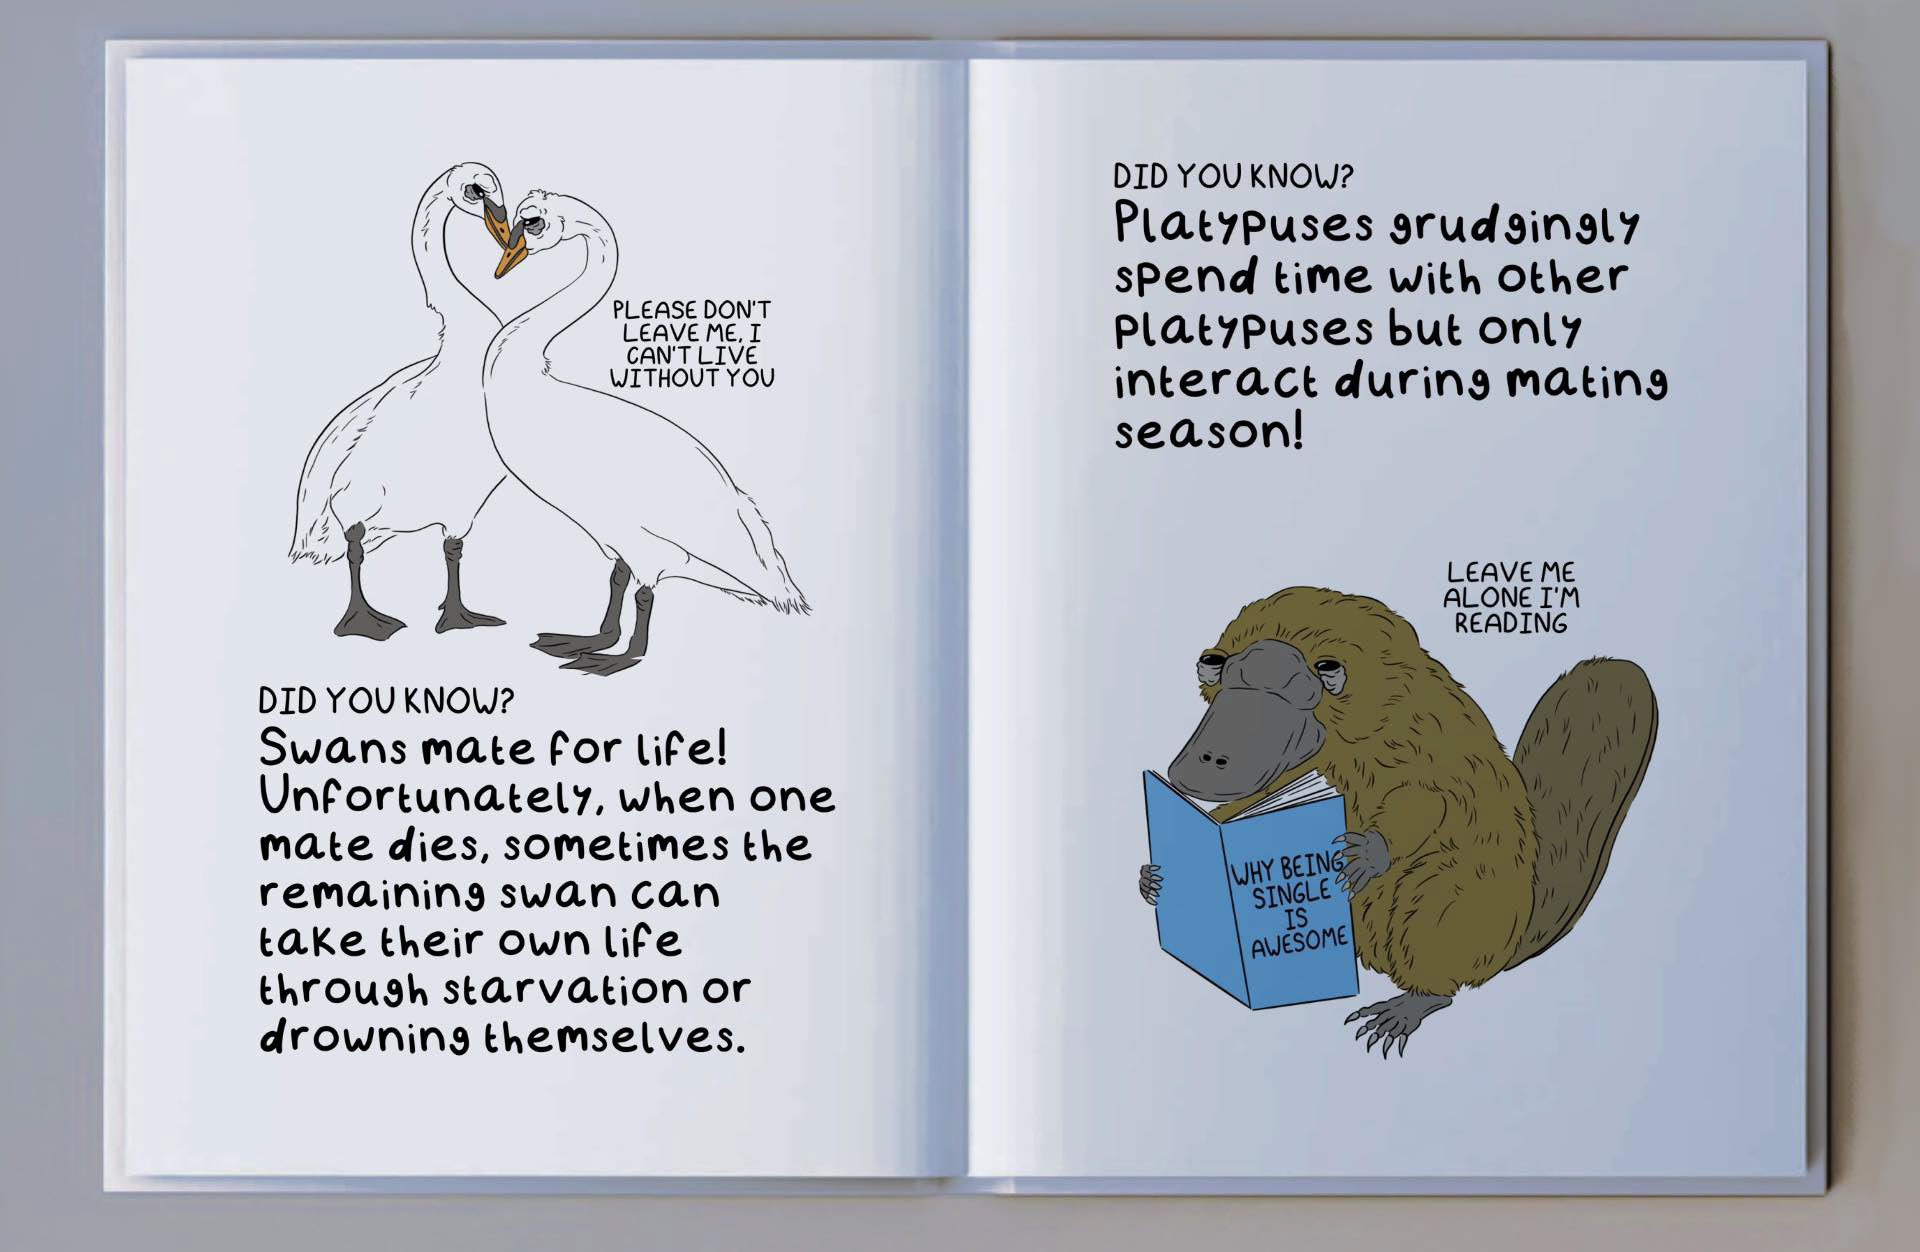 PLEASE DON'T
LEAVE ME, I
CAN'T LIVE
WITHOUT YOU
DID YOU KNOW?
Swans mate for life!
Unfortunately, when one
mate dies, sometimes the
remaining swan can
take their own life
through starvation or
drowning themselves.
DID YOU KNOW?
Platypuses grudgingly
spend time with other
platypuses but only
interact during mating
season!
LEAVE ME
ALONE I'M
READING
WHY BEING
SINGLE
IS
AWESOME